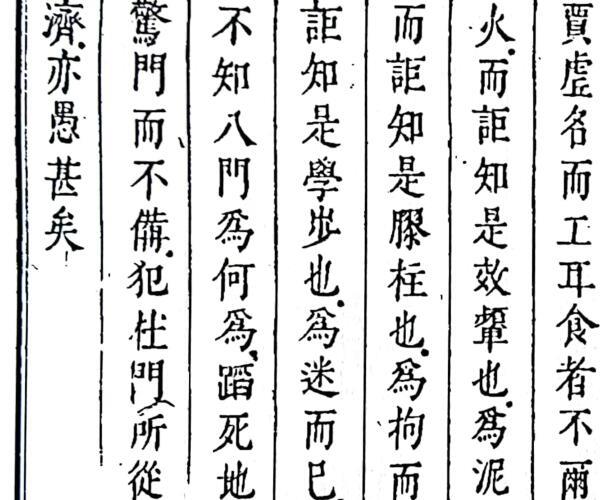 賈虛名而工耳食者不爾
火而詎知是效顰也爲泥
而詎知是膠柱也爲拘而
詎知是學步也爲迷而已
不知八門爲何爲蹈死地
驚門而不備犯杜門所從
濟亦愚甚矣